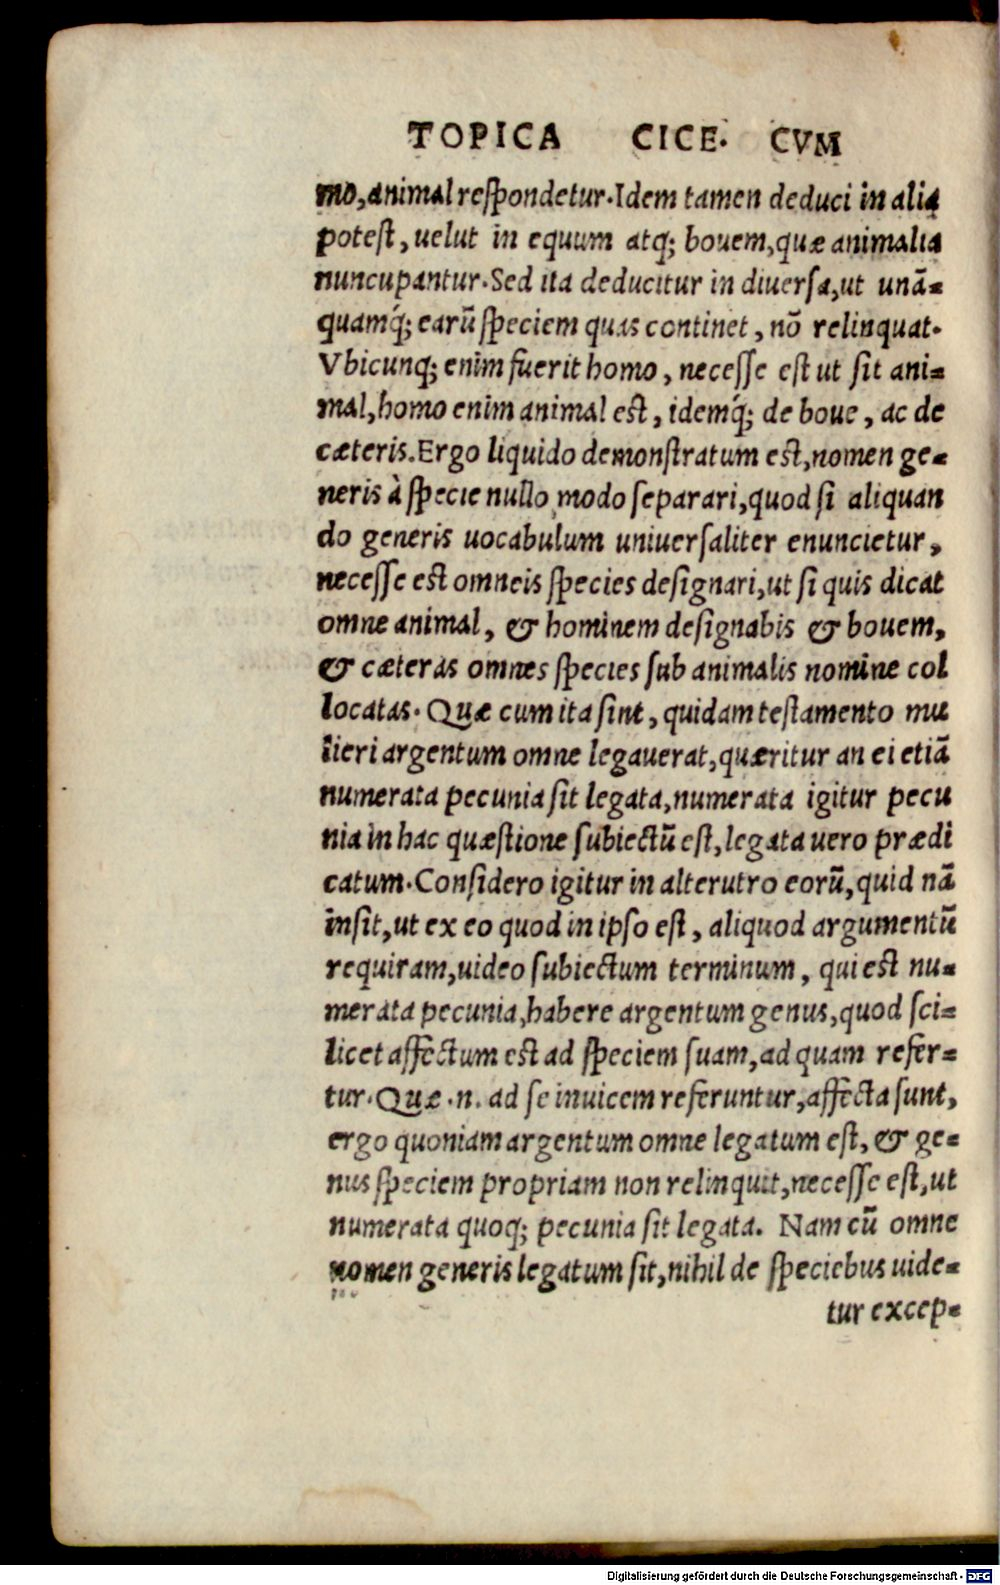 TOPICA CICE. CVM
mo, animal respondetur. Idem tamen deduci in alia
potest, uelut in equum atq; bouem, quæ animalia
nuncupantur. Sed ita deducitur in diuersa, ut unã-
quamq́; earũ speciem quas continet, nõ relinquat.
Vbicunq; enim fuerit homo, necesse est ut sit ani-
mal, homo enim animal est, idemq́; de boue, ac de
cæteris. Ergo liquido demonstratum est, nomen ge-
neris à specie nullo modo separari, quod si aliquan
do generis uocabulum uniuersaliter enuncietur,
necesse est omneis species designari, ut si quis dicat
omne animal, & hominem designabis & bouem,
& cæteras omnes species sub animalis nomine col
locatas. Quæ cum ita sint, quidam testamento mu
lieri argentum omne legauerat, quæritur an ei etiã
numerata pecunia sit legata, numerata igitur pecu
nia in hac quæstione subiectũ est, legata uero prædi
catum. Considero igitur in alterutro eorũ, quid nã
insit, ut ex eo quod in ipso est, aliquod argumentũ
requiram, uideo subiectum terminum, qui est nu-
merata pecunia, habere argentum genus, quod sci-
licet affectum est ad speciem suam, ad quam refer-
tur. Quæ .n. ad se inuicem referuntur, affecta sunt,
ergo quoniam argentum omne legatum est, & ge-
nus speciem propriam non relinquit, necesse est, ut
numerata quoq; pecunia sit legata. Nam cũ omne
nomen generis legatum sit, nihil de speciebus uide-
tur excep-
Digitalisierung gefördert durch die Deutsche Forschungsgemeinschaft - DFG